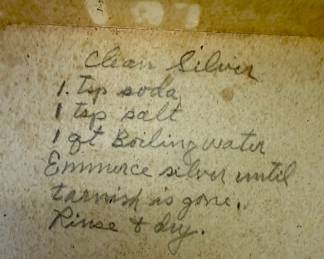 Clean Silver
1. tsp soda
1 tsp salt
1 qt Boiling water
Emmerce silver until
tarnish is gone.
Rinse & dry.